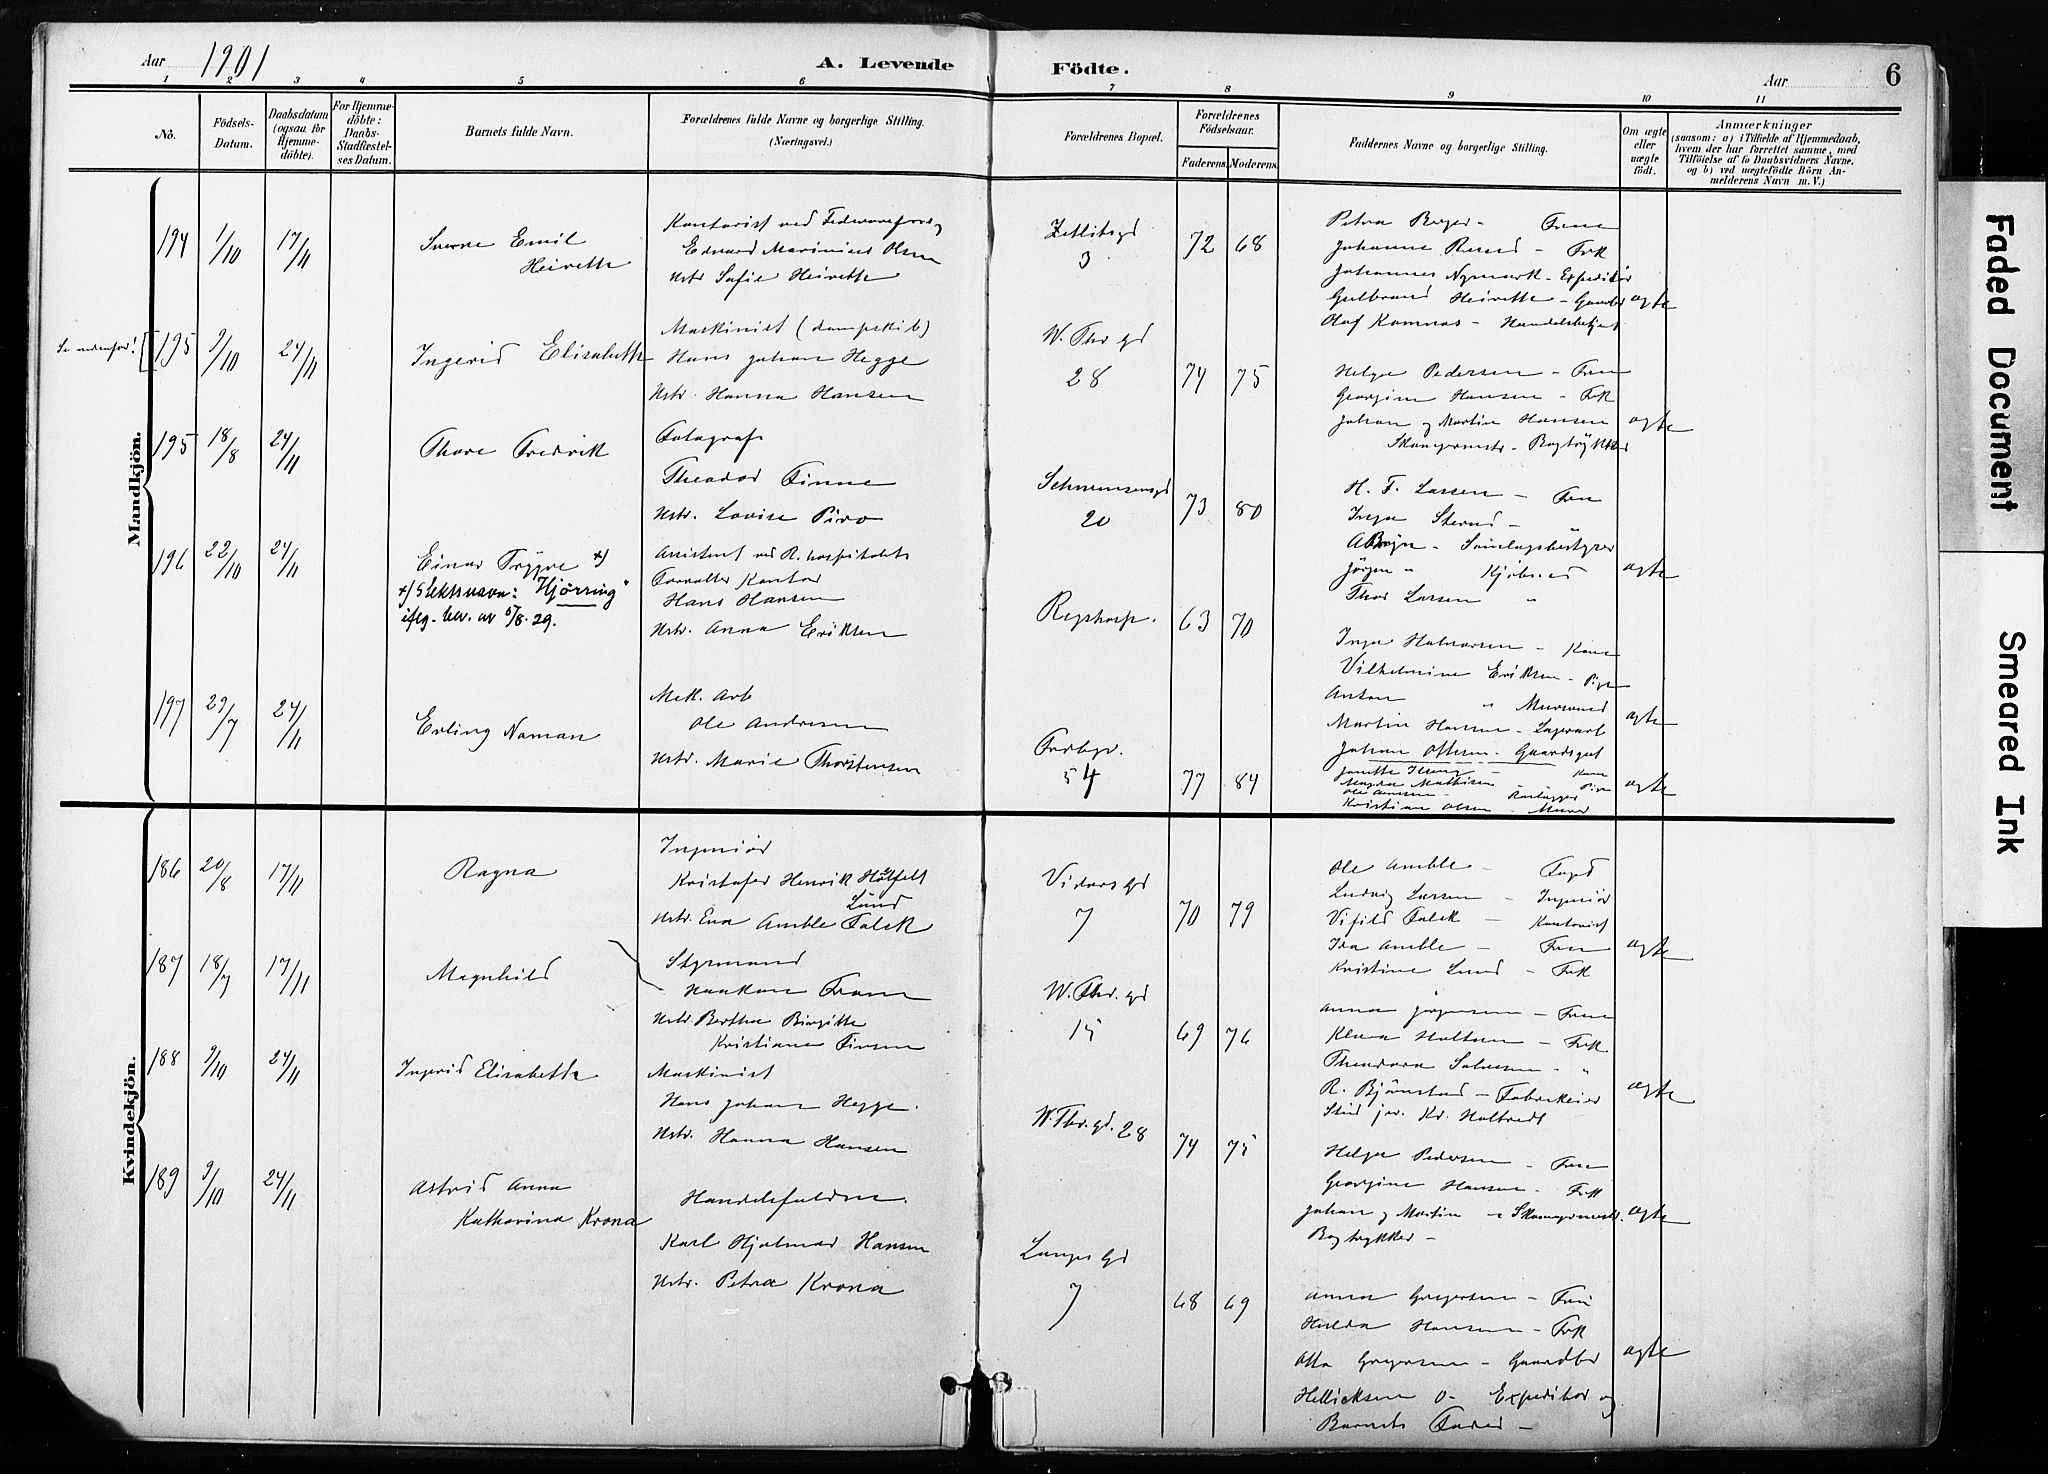 Aar 1901
A. Levende Födte.
Aar
6
1 2 3 4 5 6 7 8 9 10 11
No.
Födsels-Datum.
Daabsdatum (ogsaa for Hjemmedöbte).
For Hjemmedöbte: Daabs-Stadfæstelses Datum.
Barnets fulde Navn.
Forældrenes fulde Navne og borgerlige Stilling.
(Næringsvei.)
Forældrenes Bopæl.
Forældrenes Födselsaar.
Faderens. Moderens.
Faddernes Navne og borgerlige Stilling.
Om ægte eller uægte födt.
Anmærkninger
(saasom: a) i Tilfælde af Hjemmedaab, hvem der har forrettet samme, med Tilföielse af to Daabsvidners Navne, og b) ved uægtefödte Börn Anmelderens Navn m. V.)
Mandkjön.
194 1/10 17/11
Sverre Emil
Heivette
Kontorist ved
Edvard Marinius Olsen
Hstr Sofie Heivette
3
72 68
Petra - Frue
Johanne - Frk
Johannes Nymark - Expeditør
Gulbrand Heivette - Gaardbr
Olaf Komnæs - Handelsbetjent
ægte
Se nedenfor!
195 9/10 24/11
Ingerid Elisabeth
Maskinist (dampskib)
Hans Johan Hegge
Hstr. Hanna Hansen
W. Thr gd
28
74 75
Helga Pedersen - Frue
Georgine Hansen - Frk
Johan og Martin Hansen
Skomagermestr - Bogtrykker
ægte
195 18/8 24/11
Thore Fredrik
Fotograf
Theodor Finne
Hstr. Lovise Piro
Schwensensgd
20
73 80
H. F. Larsen - Frue
Inga -
- Samlagsbestyrer
Jørgen " Kjøbmd
Thor Larsen "
ægte
196 22/10 24/11
Einar Trygve x)
x) Slektsnavn: "Hjørring"
ifølg. bev. av 5/8. 29.
Assistent ved R. hospitalets
Forvalter Kontor
Hans Hansen
Hstr. Anna Eriksen
Rigshosp.
63 70
Inga Halvorsen - Kone
Vilhelmine Eriksen - Pige
Anton " Murermd
Martin Hansen - Lagerarb
Johan Ottesen - Gaardsgut
ægte
197 29/7 24/11
Erling Norman
Mek. Arb
Ole Andresen
Hstr. Marie Thorstensen
54
77 84
Kone
Magda Mathisen - Pige
Ole -
Kristian Olsen - Murer
ægte
Kvindekjön.
186 20/8 17/11
Ragna
Ingeniör
Kristofer Henrik Holfelt
Lund
Hstr. Eva Amble Falck
Vidars gd
7
70 79
Ole Amble - Foged
Ludvig Larsen - Ingeniør
Falck - Kontorist
Ida Amble - Frue
Kristine Lund - Frk
ægte
187 18/7 17/11
Magnhild
Styrmand
Haakon
Hstr. Berthe Birgitte
Kristiane Iversen
W. Thr. gd
15
69 76
Anna Jørgensen - Frue
Klara - Frk
Theodora - "
R. Bjørnstad - Fabrikeier
Stud jur. Kr. Holtvedt
ægte
188 9/10 24/11
Ingerid Elisabeth
Maskinist
Hans Johan Hegge.
Hstr. Hanna Hansen
W. Thr. gd. 28
74 75
Helga Pedersen - Frue
Georgine Hansen - Frk
Johan og Martin " Skomagermestr.
Bogtrykker -
ægte
189 9/10 24/11
Astrid Anna
Katharina Krona
Karl Hjalmar Hansen
Hstr. Petra Krona
Langes gd
7
68 69
Anna Gregersen - Frue
Hulda Hansen - Frk
Otto Gregersen - Gaardbr
O - Expeditør og
Barnets Fader -
ægte
Faded Document
Smeared Ink